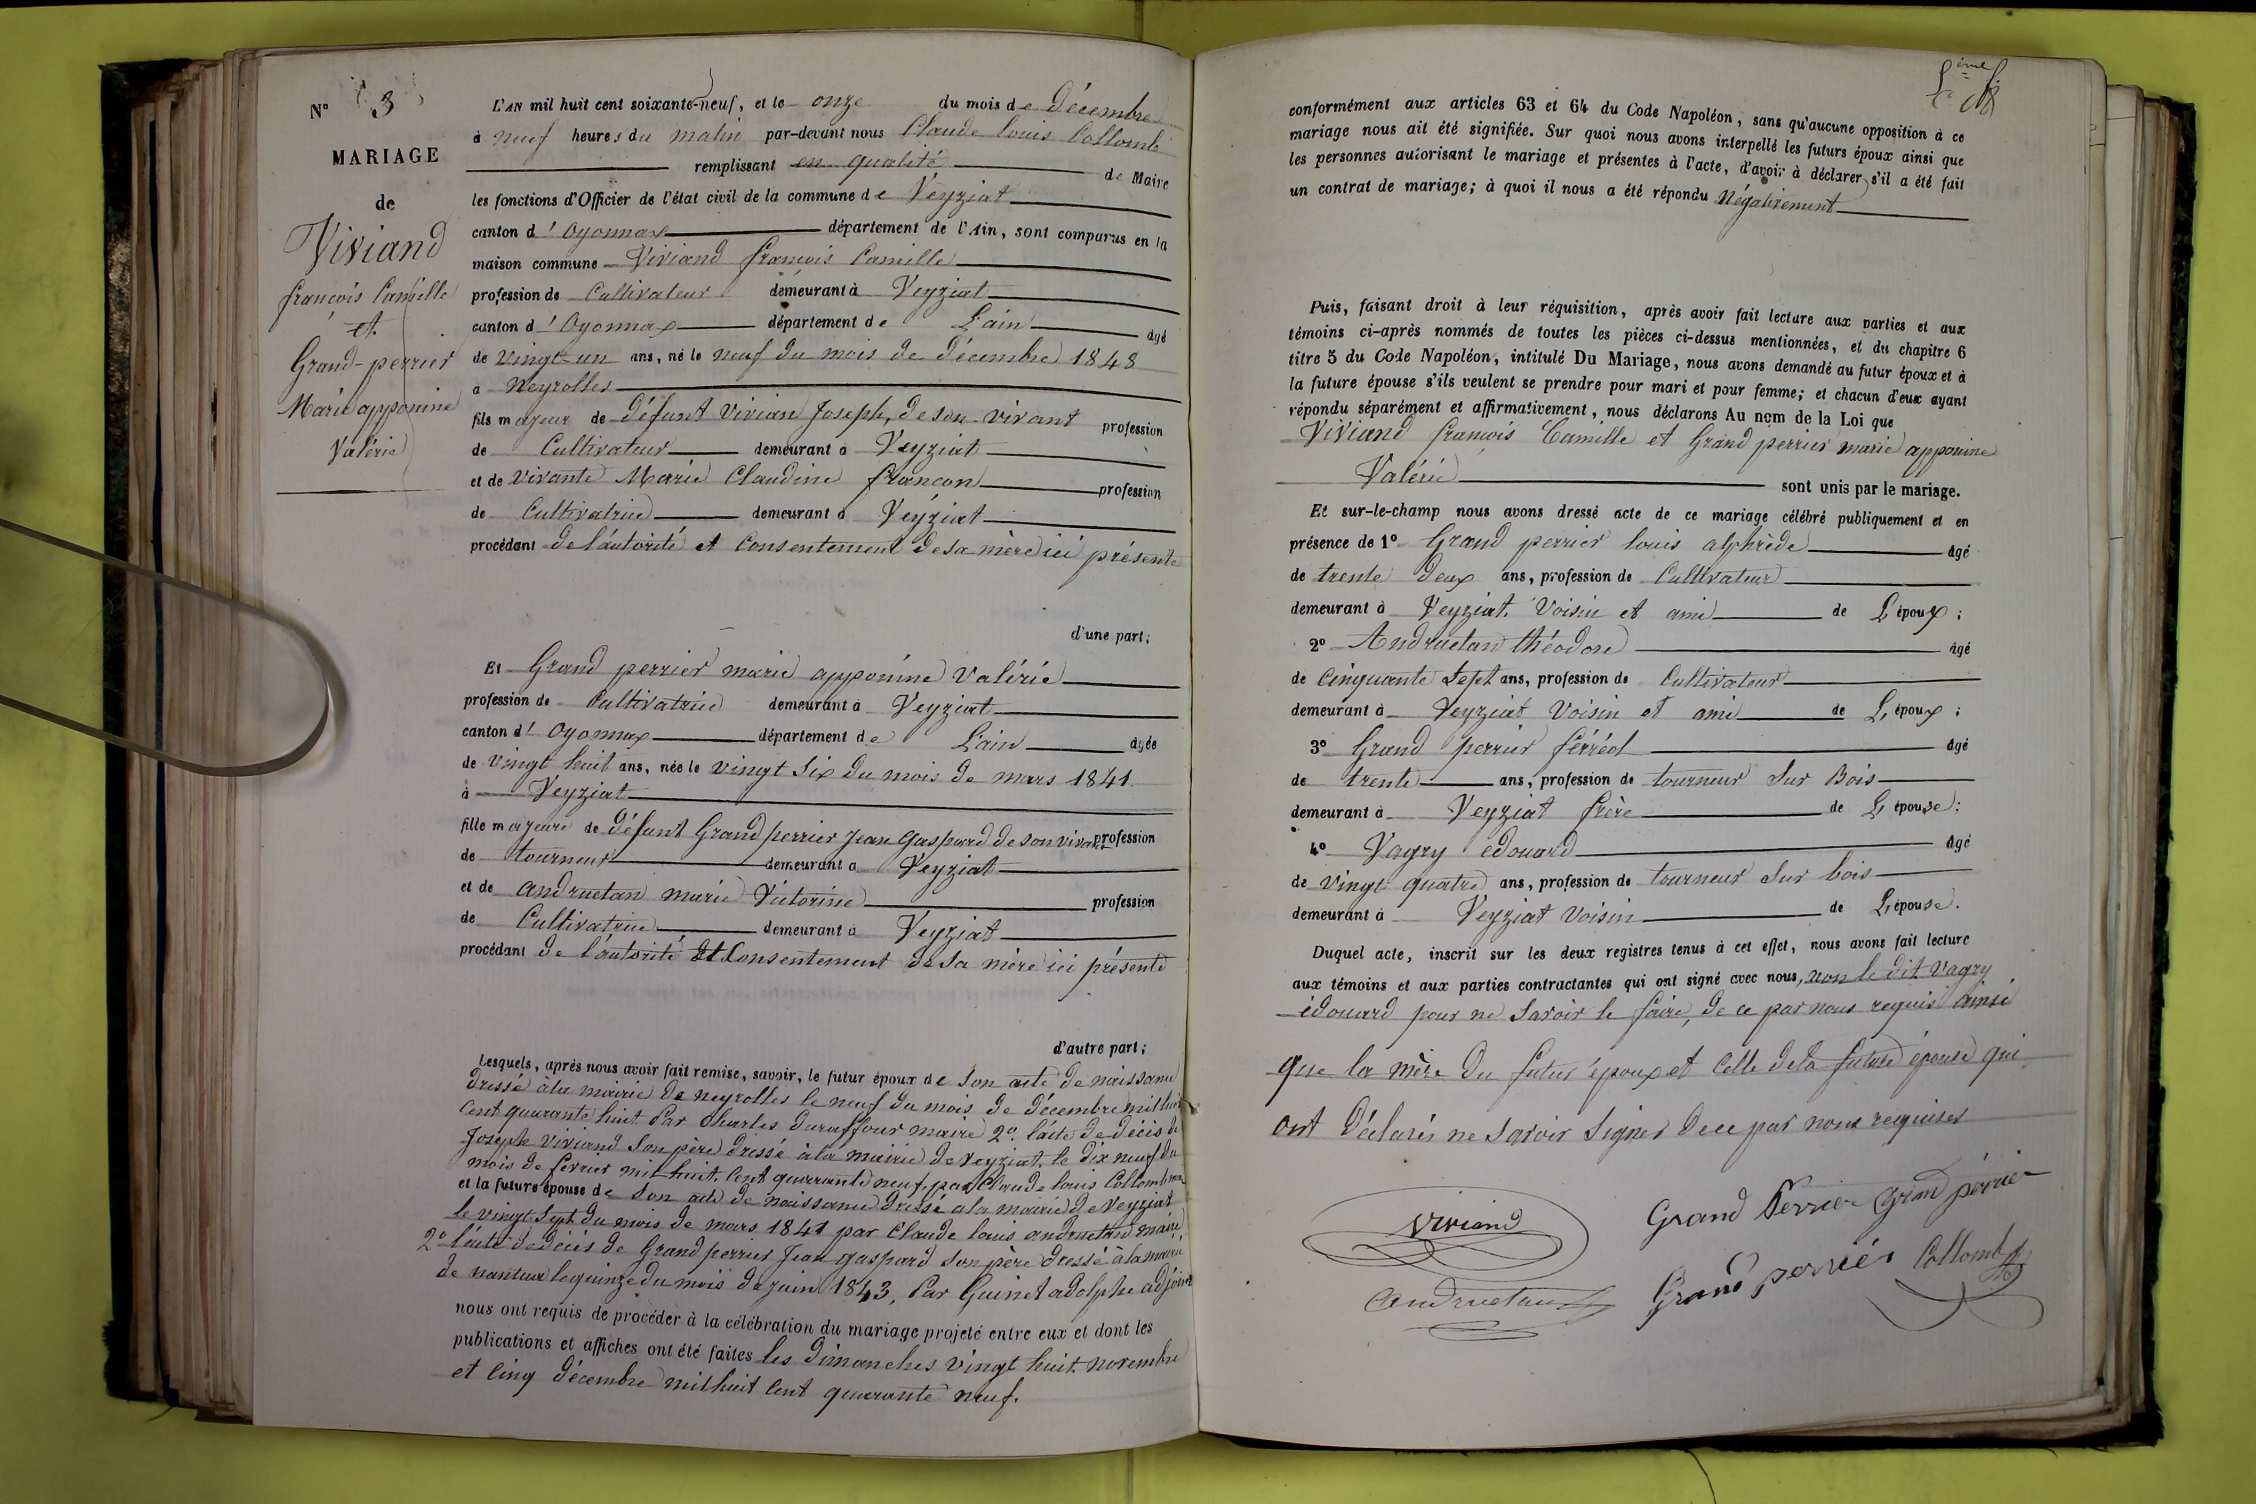 N° 3
MARIAGE
de
Viviand
françois Camille
et
Grand-perrier
Marie apponine
Valérie
L'AN mil huit cent soixante-neuf, et le onze du mois de Décembre
à neuf heures du matin par-devant nous Claude Louis Collomb
remplissant en qualité de Maire
les fonctions d'Officier de l'état civil de la commune de Veyziat
canton d'Oyonnax département de l'Ain, sont comparus en la
maison commune Viviand françois Camille
profession de Cultivateur demeurant à Veyziat
canton d'Oyonnax département de L'ain âgé
de vingt-un ans, né le neuf du mois de décembre 1848
à Neyrolles
fils majeur de défunt Vivian Joseph, de son vivant profession
de Cultivateur demeurant à Veyziat
et de vivante Marie Claudine françon profession
de Cultivatrice demeurant à Veyziat
procédant de l'autorité et Consentement de sa mère ici présente
d'une part;
Et Grand perrier marie apponine Valérie
profession de Cultivatrice demeurant à Veyziat
canton d'Oyonnax département de L'ain âgée
de vingt huit ans, née le vingt six du mois de mars 1841
à Veyziat
fille majeure de défunt Grand perrier Jean Gaspard de son vivant profession
de tourneur demeurant à Veyziat
et de andruetan marie Victorine profession
de Cultivatrice demeurant à Veyziat
procédant de l'autorité et Consentement de sa mère ici présente
d'autre part;
Lesquels, après nous avoir fait remise, savoir, le futur époux de son acte de naissance
dressé à la mairie de neyrolles le neuf du mois de décembre mil huit
Cent quarante huit Par Charles duraffour maire 2° l'acte de décis de
Joseph Viviand son père dressé à la mairie de Veyziat, le dix neuf du
mois de février mil huit Cent quarante neuf, par Claude louis Collomb maire
et la future épouse de son acte de naissance dressé à la mairie de Veyziat
le vingt sept du mois de mars 1841 par Claude louis andruetan maire,
2° l'acte de décis de Grand perrier Jean gaspard son père dressé à la mairie
de nantua le quinze du mois de juin 1843, Par Guinet adolphe adjoint
nous ont requis de procéder à la célébration du mariage projeté entre eux et dont les
publications et affiches ont été faites les dimanches vingt huit novembre
et Cinq décembre mil huit Cent quarante neuf.
conformément aux articles 63 et 64 du Code Napoléon, sans qu'aucune opposition à ce
mariage nous ait été signifiée. Sur quoi nous avons interpellé les futurs époux ainsi que
les personnes autorisant le mariage et présentes à l'acte, d'avoir à déclarer s'il a été fait
un contrat de mariage; à quoi il nous a été répondu Négativement
Puis, faisant droit à leur réquisition, après avoir fait lecture aux parties et aux
témoins ci-après nommés de toutes les pièces ci-dessus mentionnées, et du chapitre 6
titre 5 du Code Napoléon, intitulé Du Mariage, nous avons demandé au futur époux et à
la future épouse s'ils veulent se prendre pour mari et pour femme; et chacun d'eux ayant
répondu séparément et affirmativement, nous déclarons Au nom de la Loi que
Viviand françois Camille et Grand perrier marie apponine
Valérie sont unis par le mariage.
Et sur-le-champ nous avons dressé acte de ce mariage célébré publiquement et en
présence de 1° Grand perrier louis alphrède âgé
de trente deux ans, profession de Cultivateur
demeurant à Veyziat Voisin et ami de L'époux;
2° Andruetan théodore âgé
de Cinquante sept ans, profession de Cultivateur
demeurant à Veyziat Voisin et ami de L'époux;
3° Grand perrier férréol âgé
de trente ans, profession de tourneur sur Bois
demeurant à Veyziat frère de L'épouse;
4° Vagry edouard âgé
de vingt quatre ans, profession de tourneur sur bois
demeurant à Veyziat Voisin de L'épouse.
Duquel acte, inscrit sur les deux registres tenus à cet effet, nous avons fait lecture
aux témoins et aux parties contractantes qui ont signé avec nous, non le dit Vagry
édouard pour ne savoir le faire, de ce par nous requis ainsi
que la mère du futur époux et Celle de la future épouse qui
ont déclarés ne savoir signer de ce par nous requises
Viviand Grand Perrier Grand périer
andruetan Grand perrier Collomb